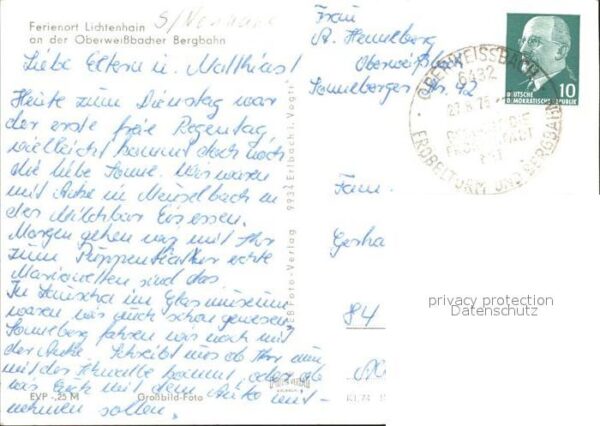 Ferienort Lichtenhain
an der Oberweißbacher Bergbahn
Liebe Eltern u. Matthias!
Heute zum Dienstag war
der erste freie Regentag,
vielleicht kommt doch noch
die liebe Sonne. Wir waren
mit Anke in Meuselbach in
der Milchbar Eis essen.
Morgen gehen wir mit Ihr
zum Puppentheater echte
Marionetten sind das.
In Lauscha im Glasmuseum
waren wir auch schon gewesen,
Sonneberg fahren wir noch mit
der Anke. Schreibt uns ob Ihr nun
mit der kommt, oder ob
wir Euch mit dem Auto mit-
nehmen sollen.
EVP -,25 M
Großbild-Foto
VEB Foto-Verlag 9934 Erlbach i. Vogtl.
Frau
A. Hemelberg
Oberweißbach
Sonneberger Str. 92
DEUTSCHE
DEMOKRATISCHE REPUBLIK
10
OBERWEISSBACH
6432
27.8.75
FRÖBELTURM UND BERGBAHN
Fam.
Gerha
84
privacy protection
Datenschutz